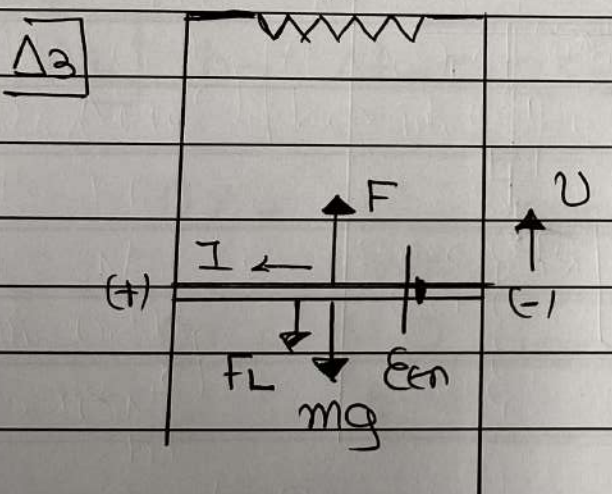 Δ3
F
υ
I ←
(+)
(-)
FL
Eεπ
mg